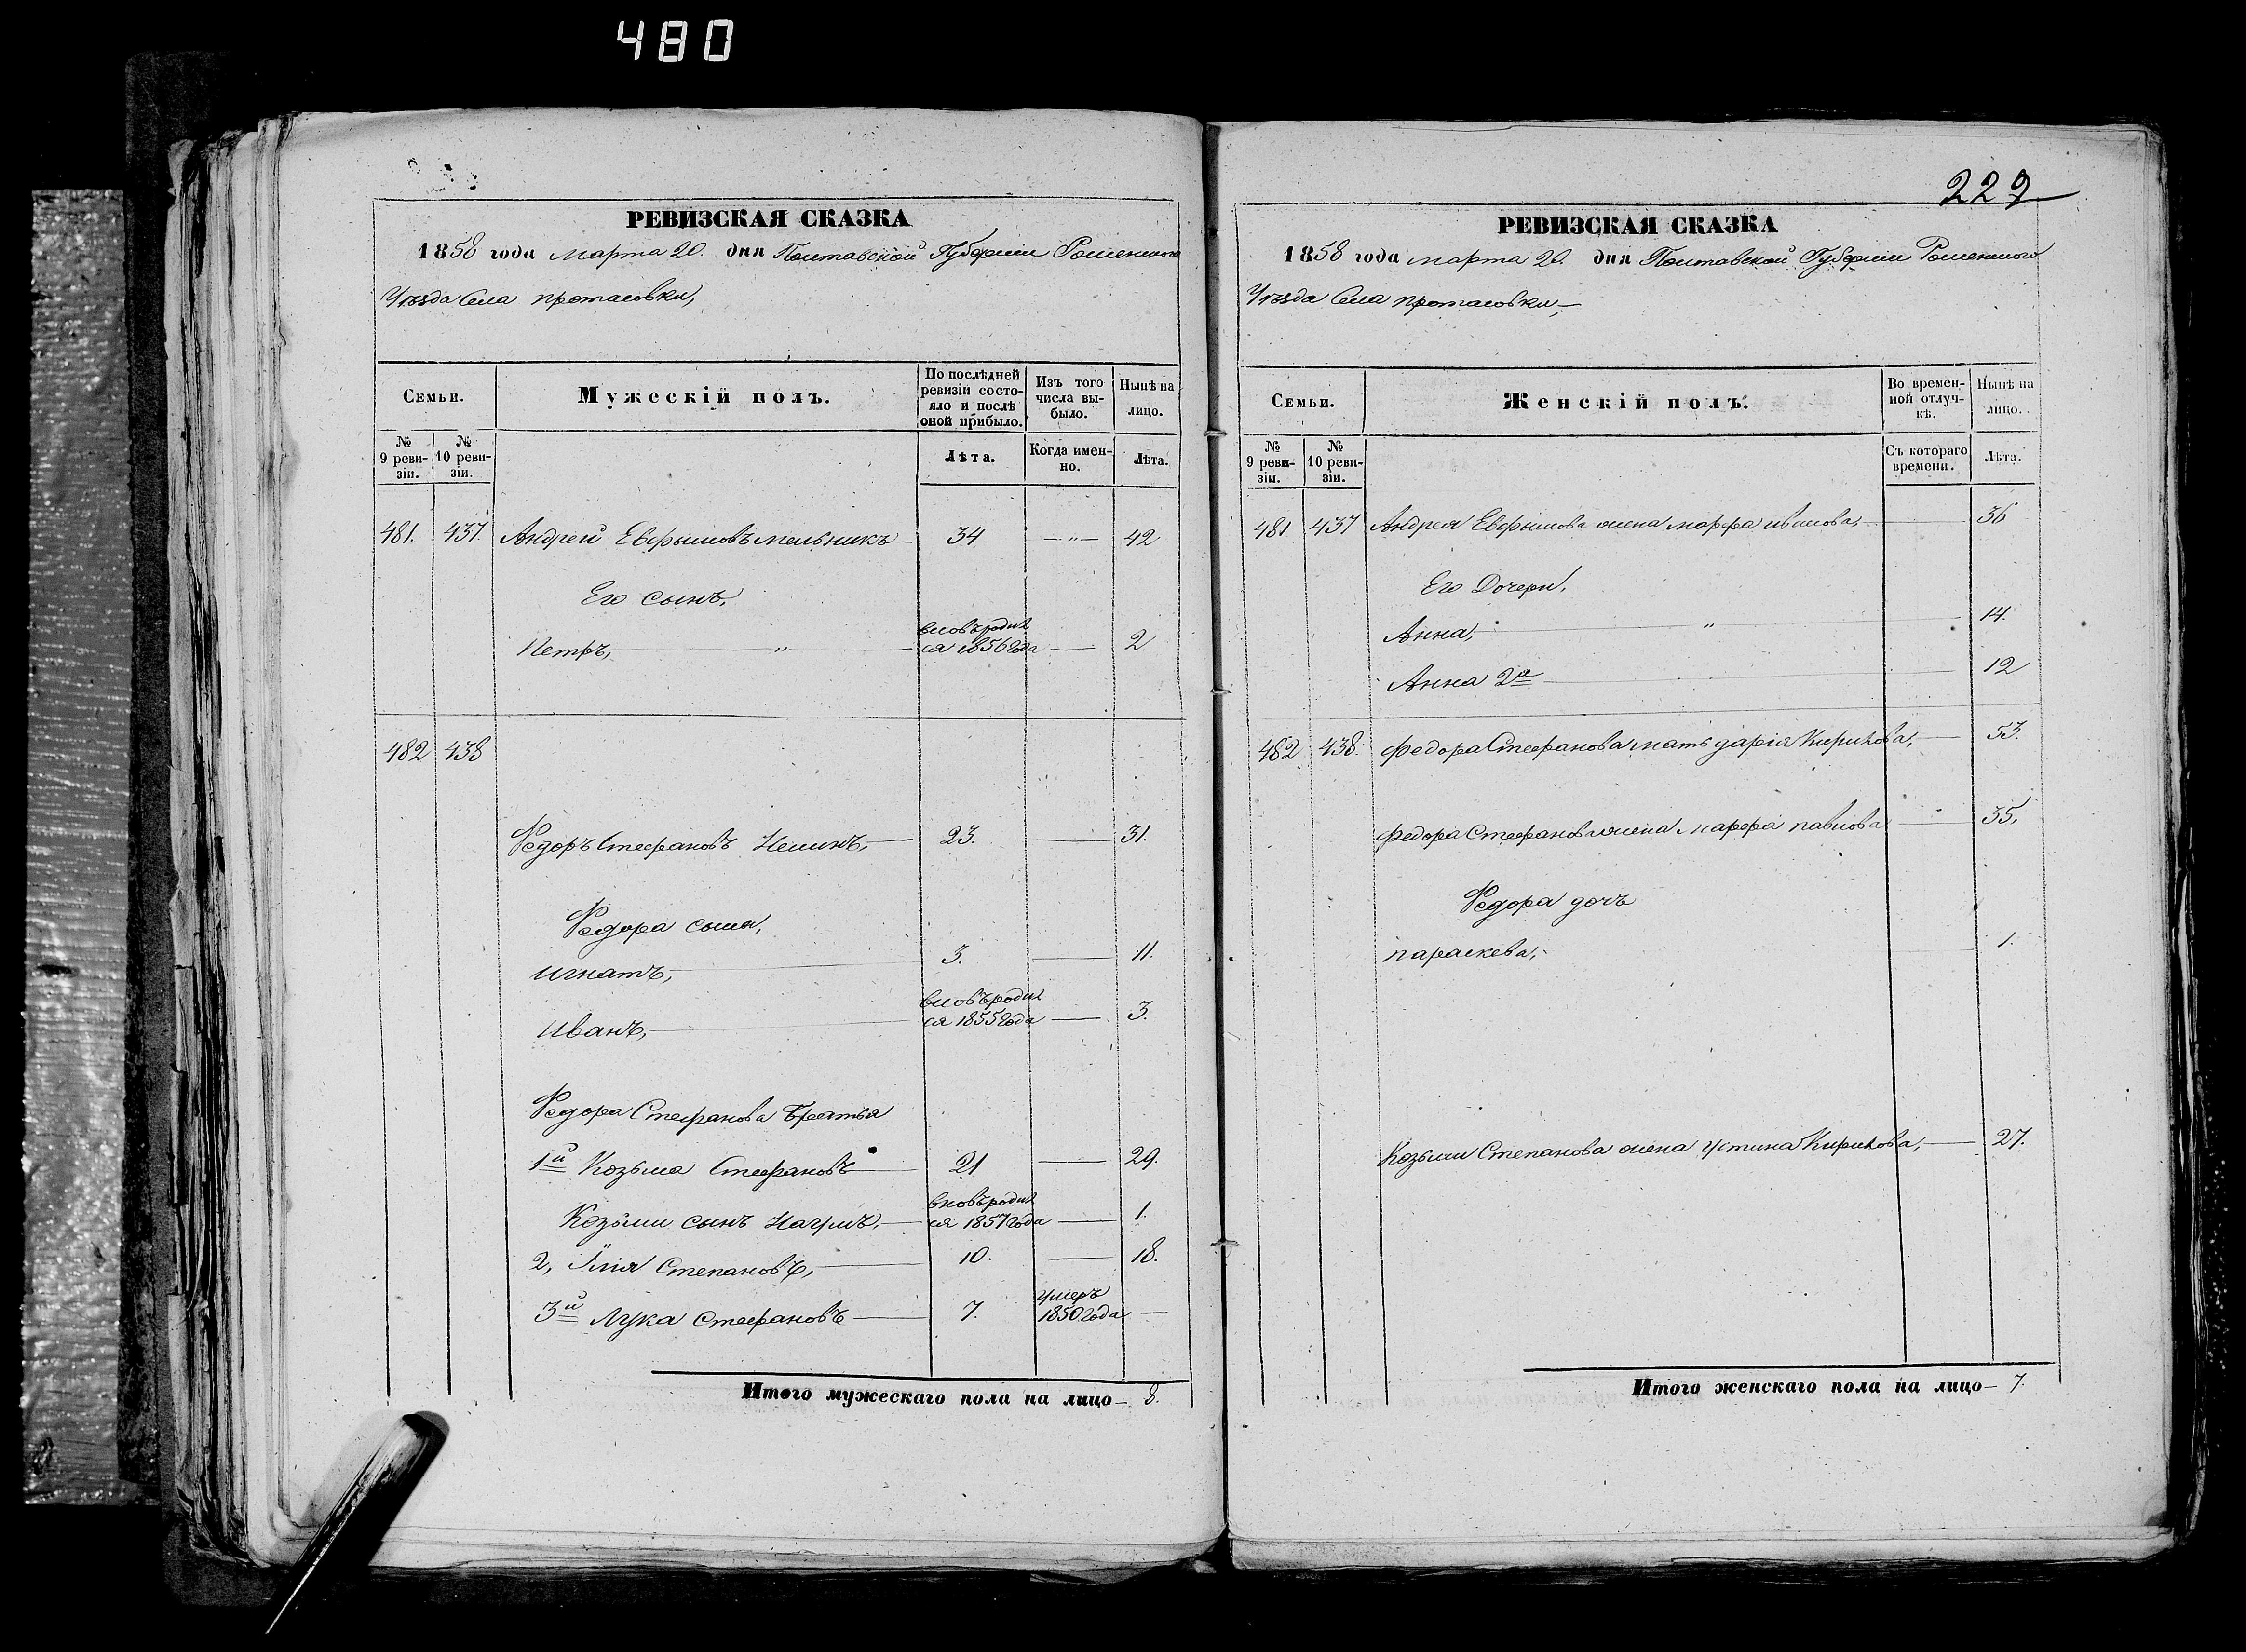 480
РЕВИЗСКАЯ СКАЗКА
1858 года марта 20. дня Полтавской Губерніи Роменского
Уѣзда Села протасовки,
Семьи.
Мужескій полъ.
По послѣдней ревизіи состояло и послѣ оной прибыло.
Изъ того числа выбыло.
Нынѣ на лицо.
№ 9 ревизіи.
№ 10 ревизіи.
Лѣта.
Когда именно.
Лѣта.
481. 437. Андрей Евфымовъ мельникъ 34 — „ — 42
Его сынъ,
Петръ, „ вновь родил
ся 1856 года — 2
482 438
Федоръ Стефановъ 23. — 31.
Федора сыны,
игнатъ, 3. — 11.
иванъ, вновь родил
ся 1855 года — 3.
Федора Стефанова братья
1й Козьма Стефановъ 21 — 29.
Козьми сынъ Наумъ, вновь родил
ся 1857 года — 1.
2, Илія Степановъ, 10. — 18.
3й Лука Стефановъ 7. умеръ
1850 года —
Итого мужескаго пола на лицо — 8.
229
РЕВИЗСКАЯ СКАЗКА
1858 года марта 20. дня Полтавской Губерніи Роменского
Уѣзда Села протасовки, —
Семьи.
Женскій полъ.
Во временной отлучкѣ.
Нынѣ на лицо.
№ 9 ревизіи.
№ 10 ревизіи.
Съ котораго времени.
Лѣта.
481 437 Андрея Евфымова жена марфа — 36
Его Дочери,
Анна, „ — 14.
Анна 2я — 12
482 438. Федора Стефанова мать дарія Кирилова, — 53.
Федора Стефанова жена марфа павлова — 35,
Федора дочь
параскева, — 1.
Козьми Степанова жена устина Кирилова, — 27.
Итого женскаго пола на лицо — 7.